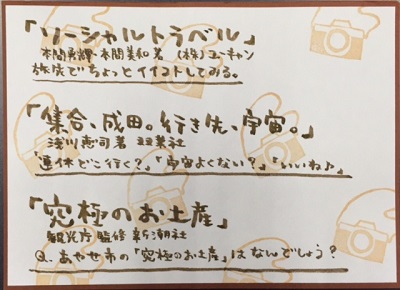 「ソーシャルトラベル」
本間勇輝・本間美和 著 (株)ユーキャン
旅先でちょっとイイコトしてみる。
「集合、成田。行き先、宇宙。」
浅川恵司 著 双葉社
「連休どこ行く?」「宇宙よくない?」「いいね♪」
「究極のお土産」
観光庁 監修 新潮社
Q.あやせ市の「究極のお土産」はなんでしょう?